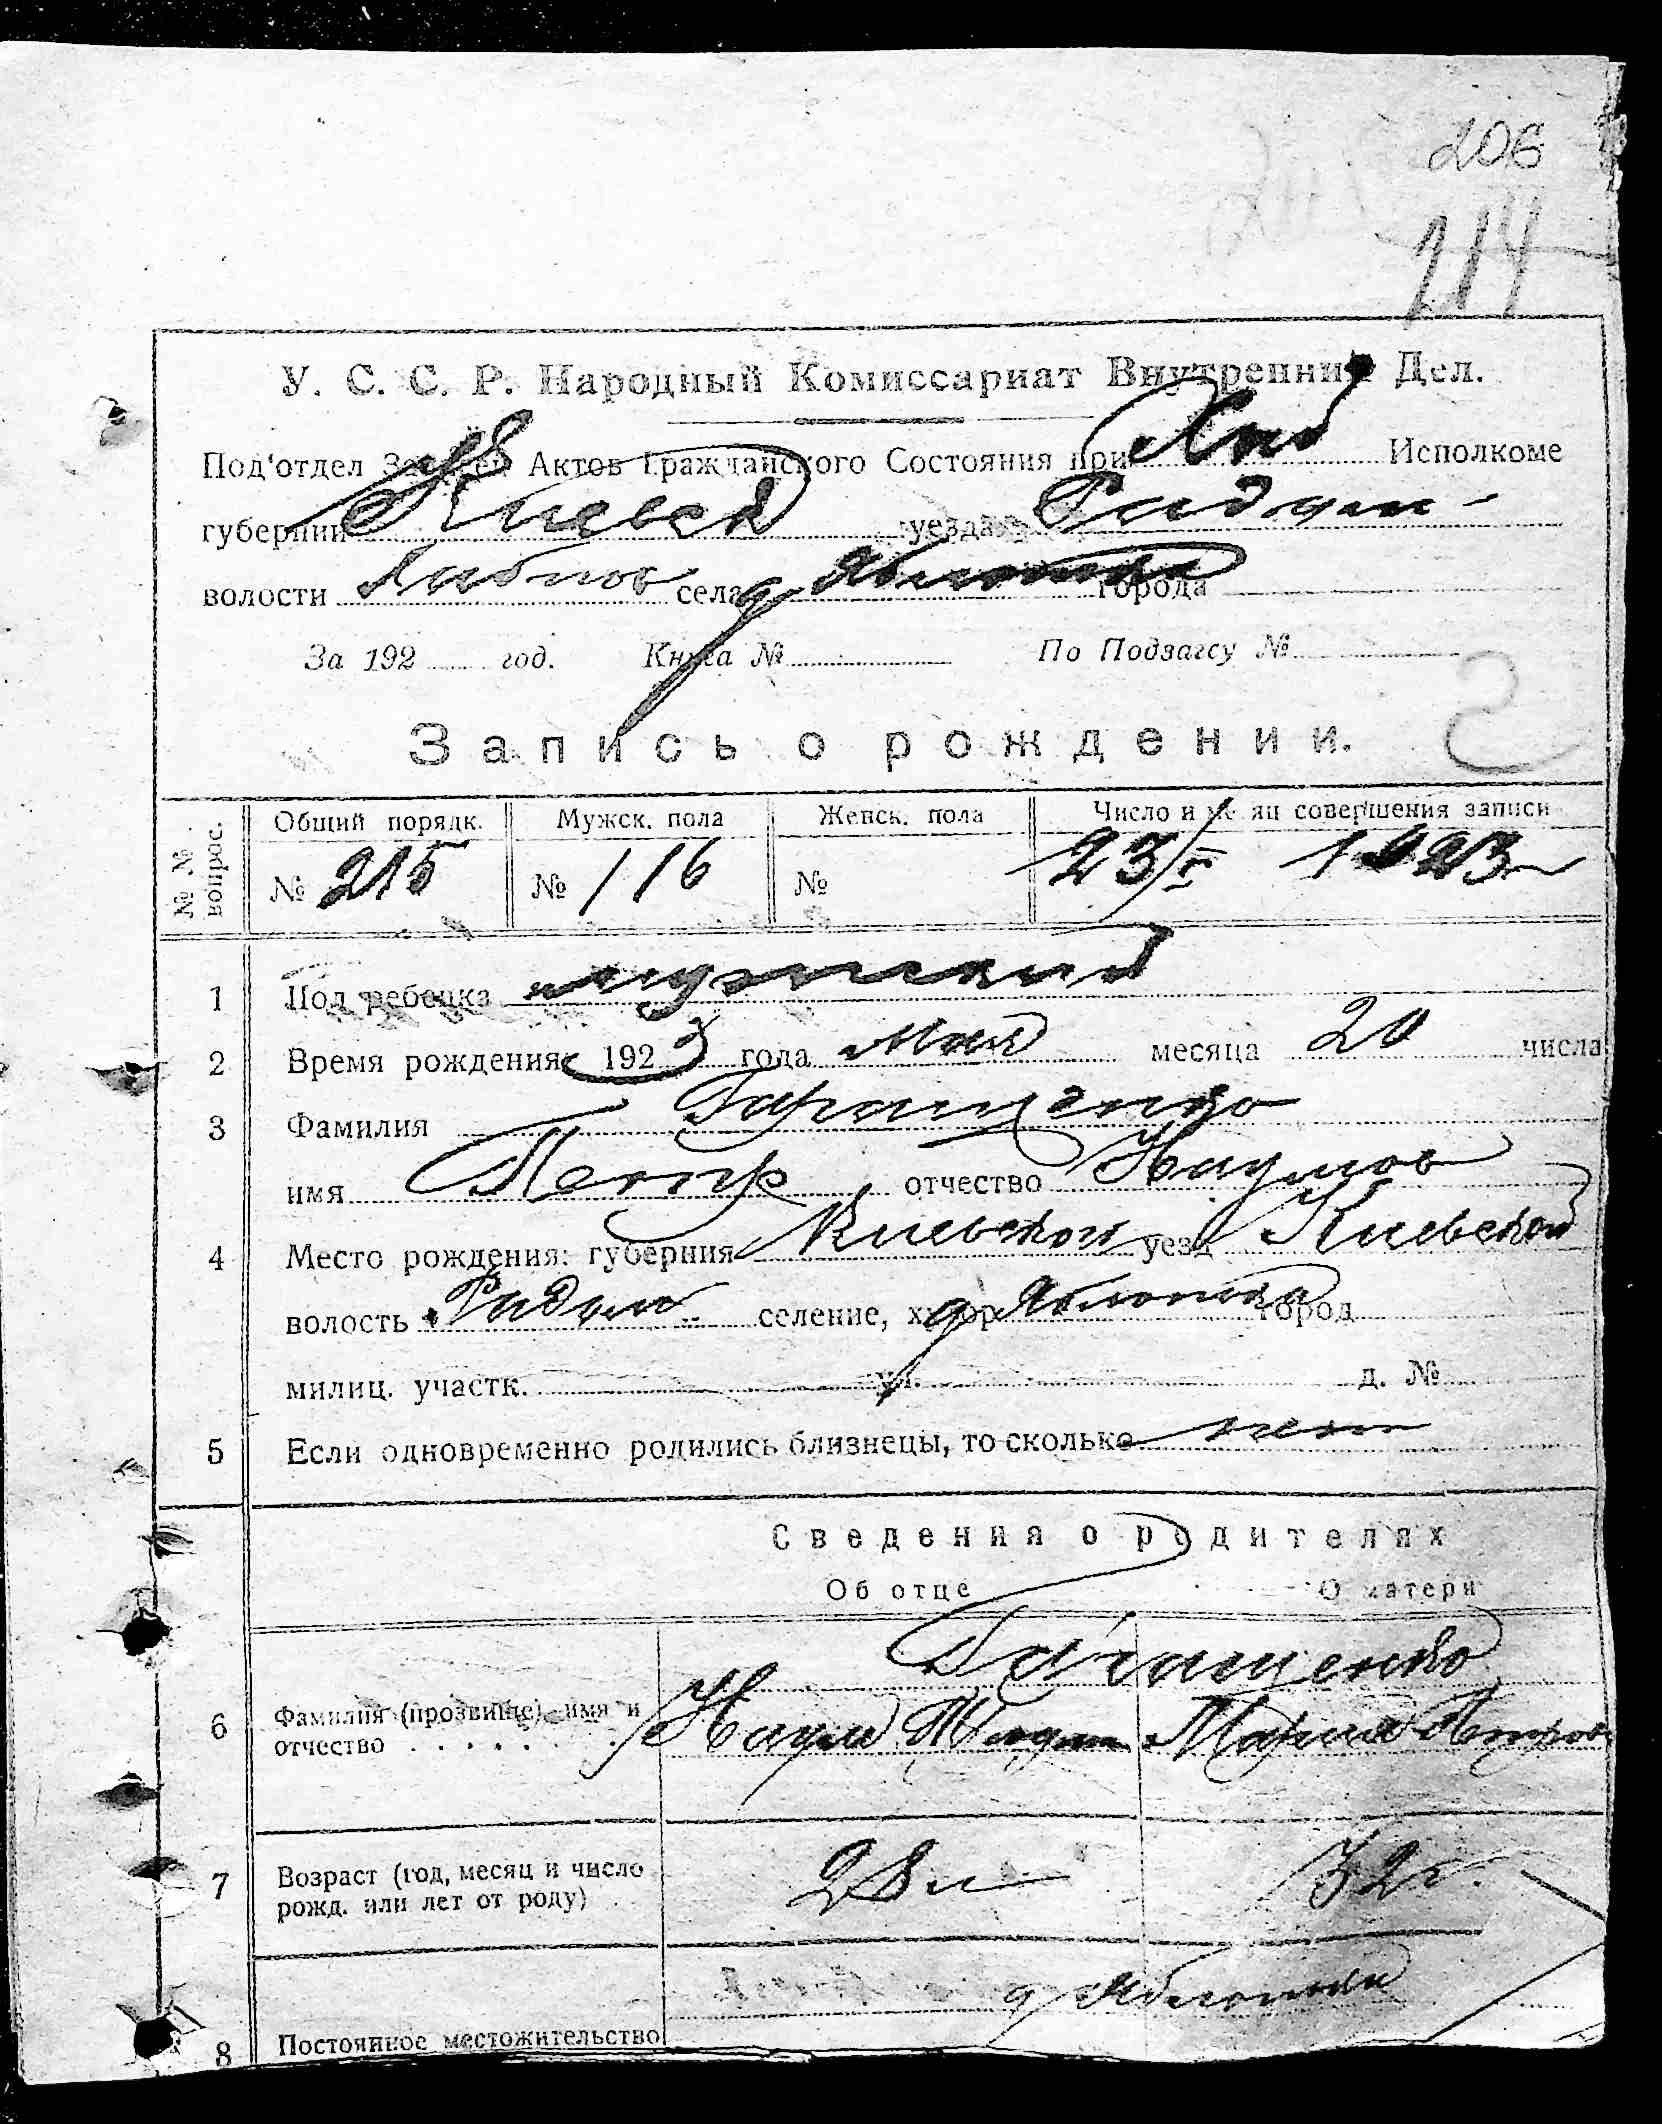 206
214
У. С. С. Р. Народный Комиссариат Внутренних Дел.
Под'отдел Записей Актов Гражданского Состояния при Хаб Исполкоме
губернии Киевск уезда Радом
волости Хабнов села д Яблонька города
За 192 год. Книга № По Подзагсу №
Запись о рождении.
№ № вопрос. Общий порядк. Мужск. пола Женск. пола Число и месяц совершения записи
№ 215 № 116 № 23/V 1923
1 Пол ребенка мужской
2 Время рождения: 1923 года Мая месяца 20 числа
3 Фамилия Геращенко
имя Петр отчество Наумов
4 Место рождения: губерния Киевской уезд Киевской
волость Радом селение, хутор д Яблонька город
милиц. участк. ул. д. №
5 Если одновременно родились близнецы, то сколько нет
Сведения о родителях
Об отце О матери
Геращенко
6 Фамилия (прозвище), имя и Наум Мария Петров
отчество
7 Возраст (год, месяц и число 28 л 32 г.
рожд. или лет от роду)
д Яблоньки
8 Постоянное местожительство